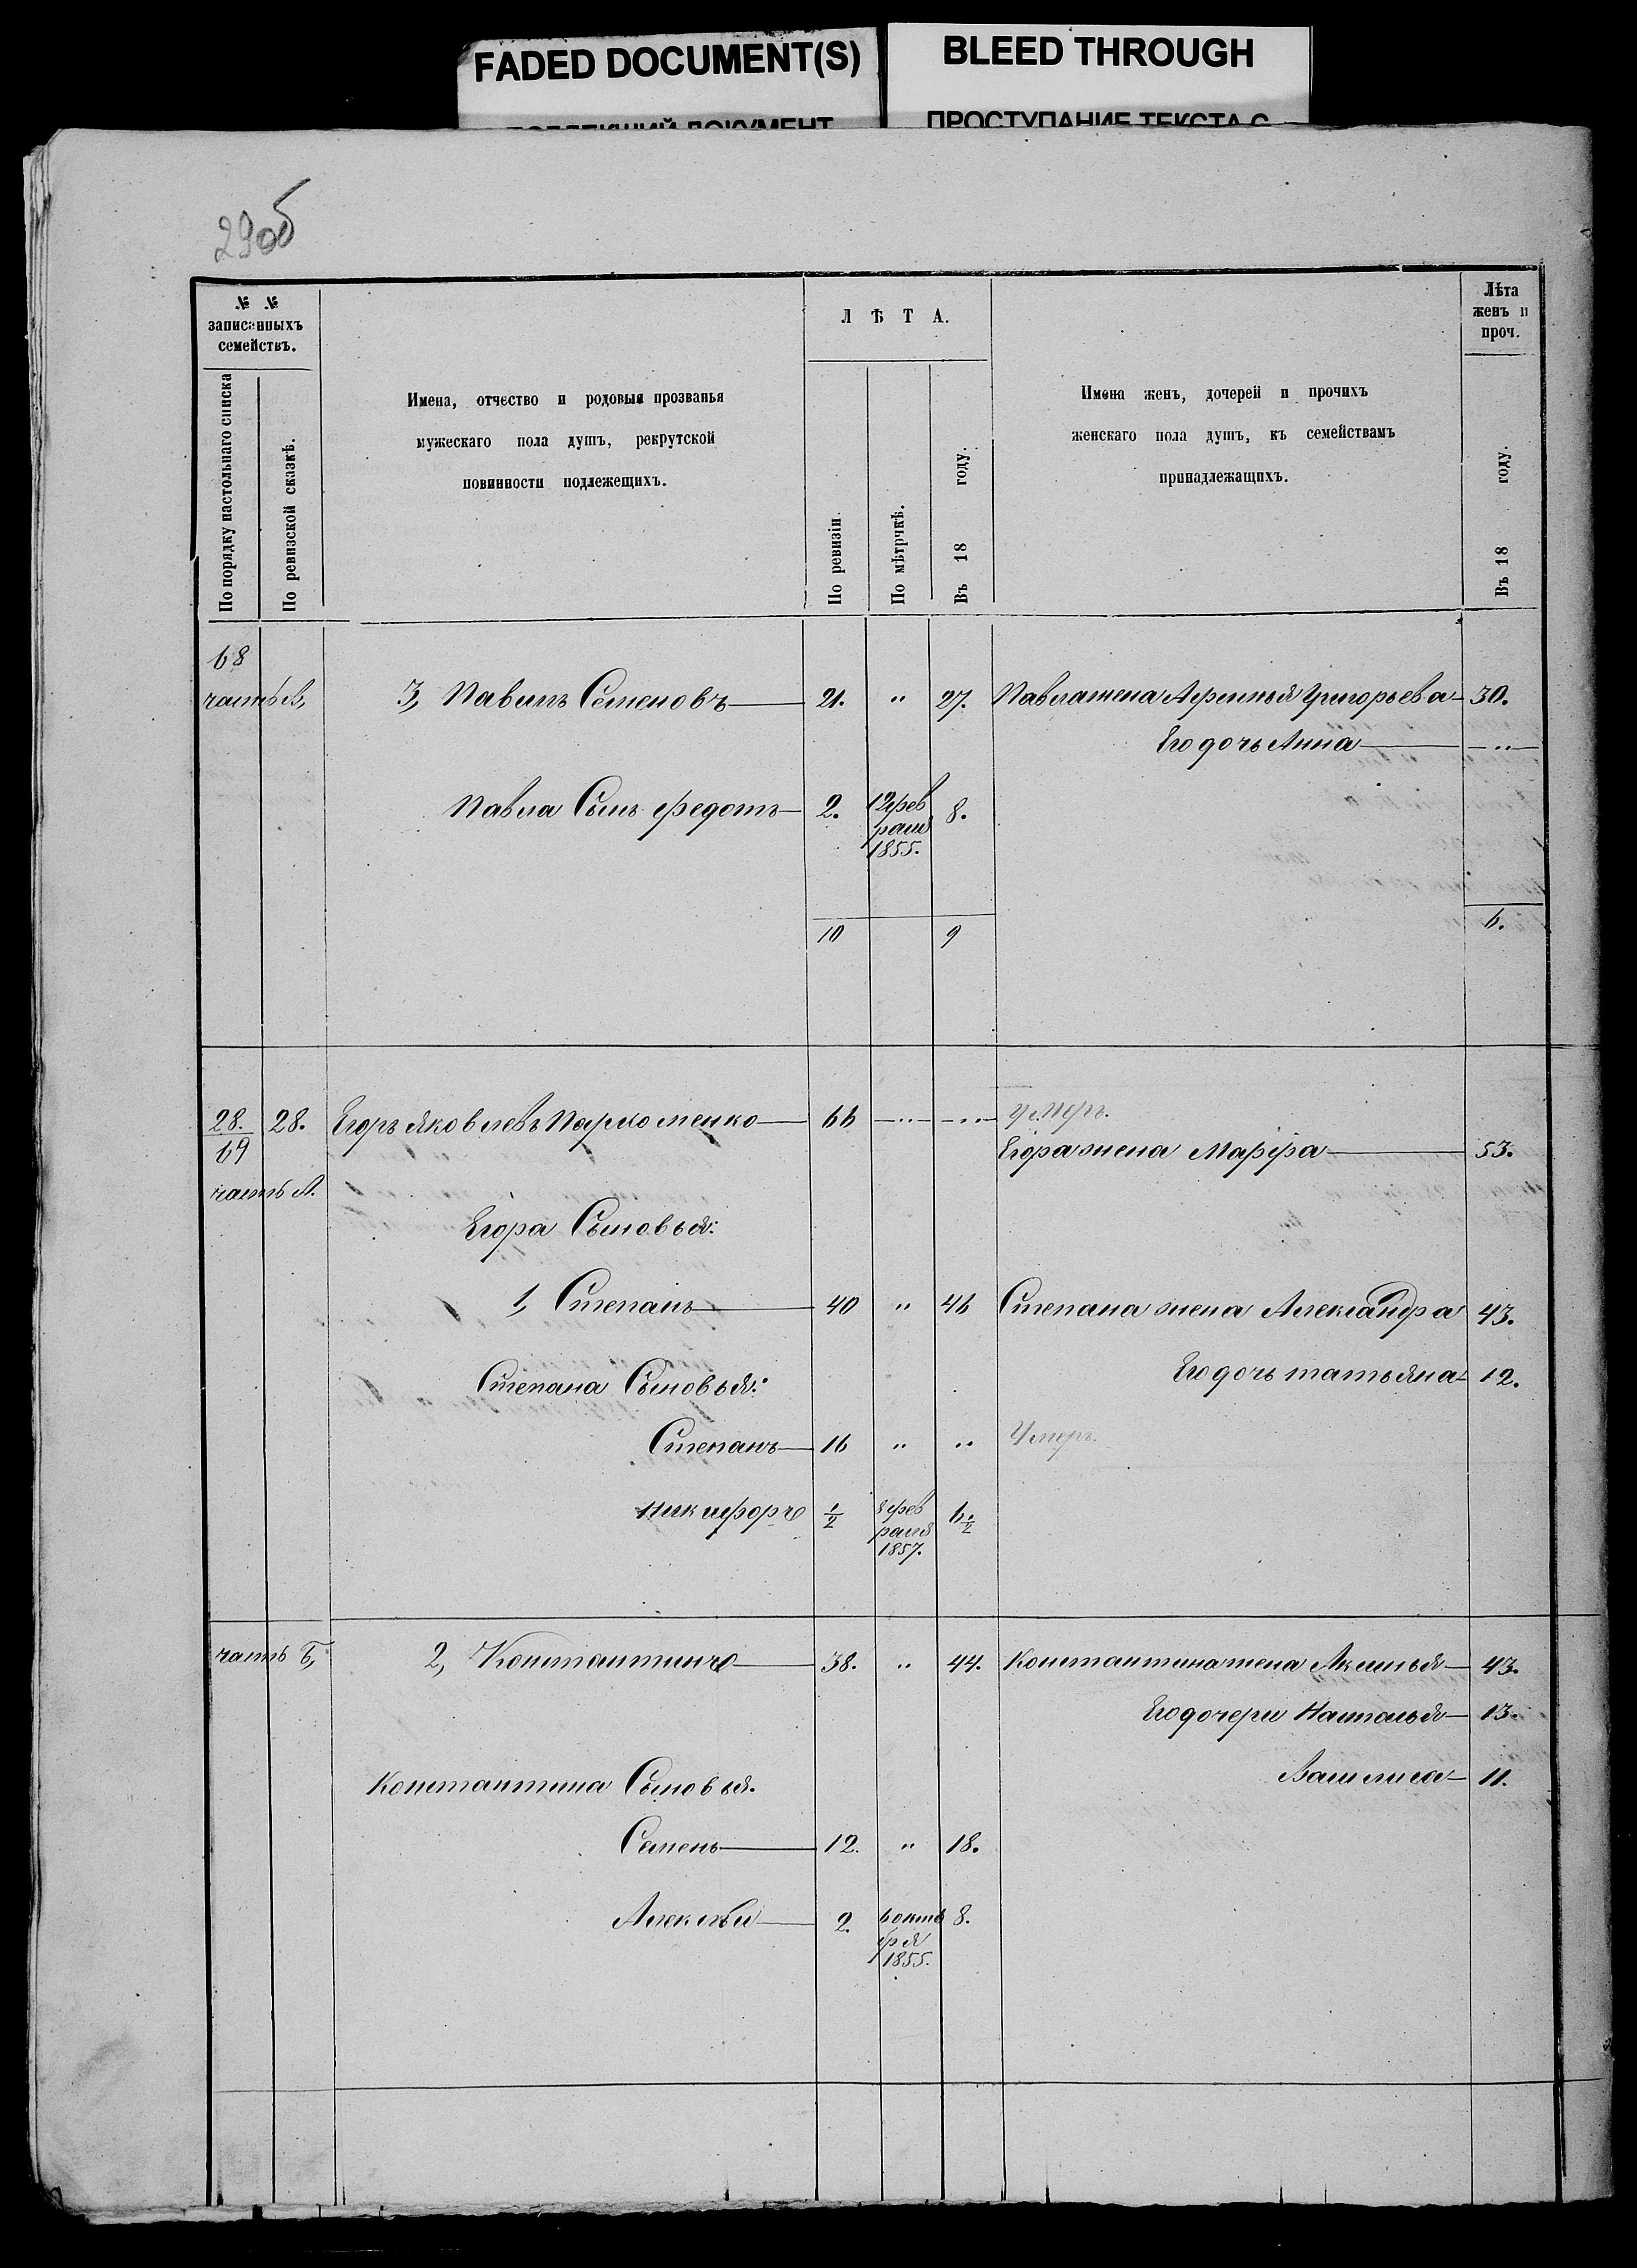 FADED DOCUMENT(S)
BLEED THROUGH
ПРОСТУПАНИЕ ТЕКСТА С
29об
№ №
записанныхъ
семействъ.
По порядку настольнаго списка
По ревизской сказкѣ.
Имена, отчество и родовыя прозванья
мужескаго пола душъ, рекрутской
повинности подлежещихъ.
Л Ѣ Т А.
По ревизіи
По мѣтрчкѣ.
Въ 18 году.
Имена женъ, дочерей и прочихъ
женскаго пола душъ, къ семействамъ
принадлежащихъ.
Лѣта
женъ и
проч.
Въ 18 году.
68
часть В, 3, Павилъ Семеновъ 21. " 27. Павла жена Афимья Григорьева 30.
Его дочь Анна "
Павла Сынъ Федотъ 2. 12 фев 8.
раля
1855.
10 9 6.
28. 28. Егоръ Яковлевъ Пархоменко 66 " " умеръ.
69 Егора жена Марфа 53.
часть А.
Егора Сыновья:
1, Степанъ 40 " 46 Степана жена Александра 43.
Степана Сыновья: Его дочь татьяна 12.
Степанъ 16 " " Умеръ.
Никифоръ 1/2 8 фев 6 1/2
раля
1857.
часть Б, 2, Константинъ 38. " 44. Константина жена Аксинья 43.
Его дочери Наталья 13.
Константина Сыновья. Василиса 11.
Семенъ 12. " 18.
Алексѣй 2. 6 октя 8.
бря
1855.